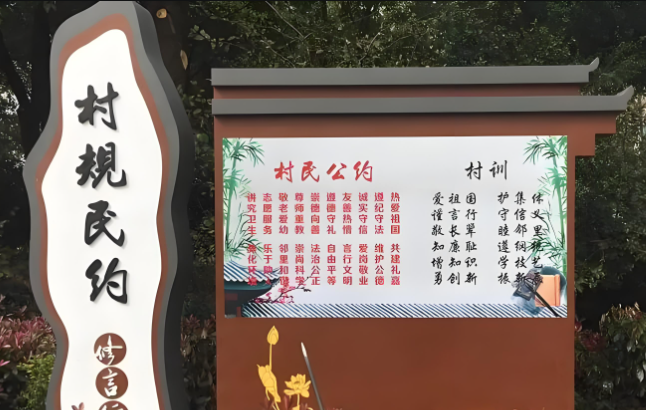 村规民约
修言
村民公约
热爱祖国 共建礼嘉
遵纪守法 维护公德
诚实守信 爱岗敬业
友善热情 言行文明
遵德守礼 自由平等
崇德向善 法治公正
尊师重教 崇尚科学
敬老爱幼 邻里和谐
志愿服务 乐于
讲究卫生 美化环境
村训
爱祖国 护集体
谨言行 守信义
敬长辈 睦邻里
知廉耻
增知识 学技艺
勇创新 振